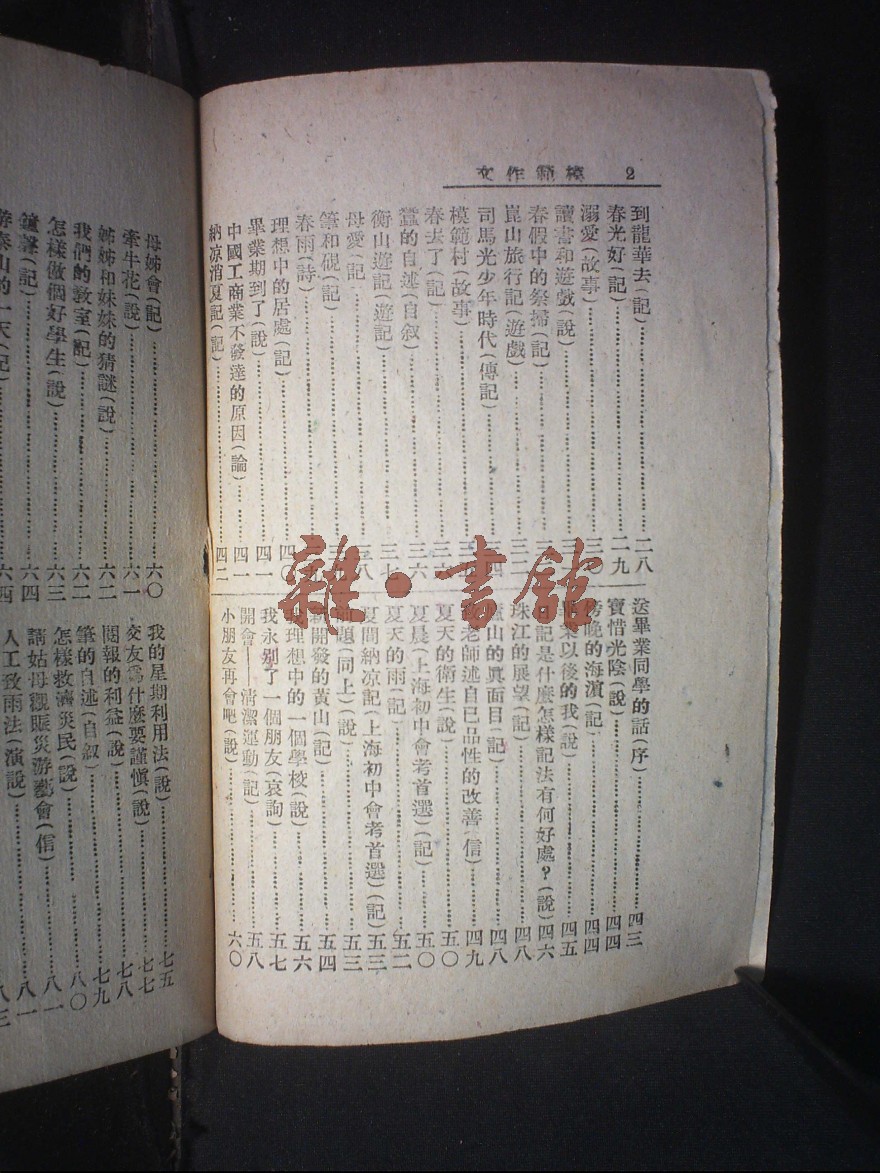 2 模範作文
到龍華去(記)………二八
春光好(記)………二九
溺愛(故事)………三
讀書和遊戲(說)………三
春假中的祭掃(記)………三
崑山旅行記(遊戲)………三二
司馬光少年時代(傳記)………四
模範村(故事)………
春去了(記)………三六
蠶的自述(自叙)………三六
衡山遊記(遊記)………三七
母愛(記)………三八
筆和硯(記)………三
春雨(詩)………
理想中的居處(記)………四〇
畢業期到了(說)………四一
中國工商業不發達的原因(論)………四一
納凉消夏記(記)………四二
送畢業同學的話(序)………四三
寶惜光陰(說)………四四
傍晚的海濱(記)………四四
畢業以後的我(說)………四五
日記是什麼怎樣記法有何好處?(說)………四六
珠江的展望(記)………四八
廬山的眞面目(記)………四八
老師述自己品性的改善(信)………四九
夏天的衛生(說)………五〇
夏晨(上海初中會考首選)(記)………五〇
夏天的雨(記)………五二
夏間納凉記(上海初中會考首選)(記)………五三
前題(同上)(說)………五三
新開發的黃山(記)………五四
我理想中的一個學校(說)………五六
我永别了一個朋友(哀詞)………五七
開會——清潔運動(記)………五八
小朋友再會吧(說)………六〇
母姊會(記)………六〇
牽牛花(說)………六一
姊姊和妹妹的猜謎(說)………六二
我們的教室(記)………六二
怎樣做個好學生(說)………六三
鐘聲(記)………六四
游泰山的一天(記)………六四
我的星期利用法(說)………七五
交友爲什麼要謹愼(說)………七七
閱報的利益(說)………七八
筆的自述(自叙)………七九
怎樣救濟災民(說)………八〇
請姑母觀賑災游藝會(信)………八一
人工致雨法(演說)………八一
八三
雜·書館